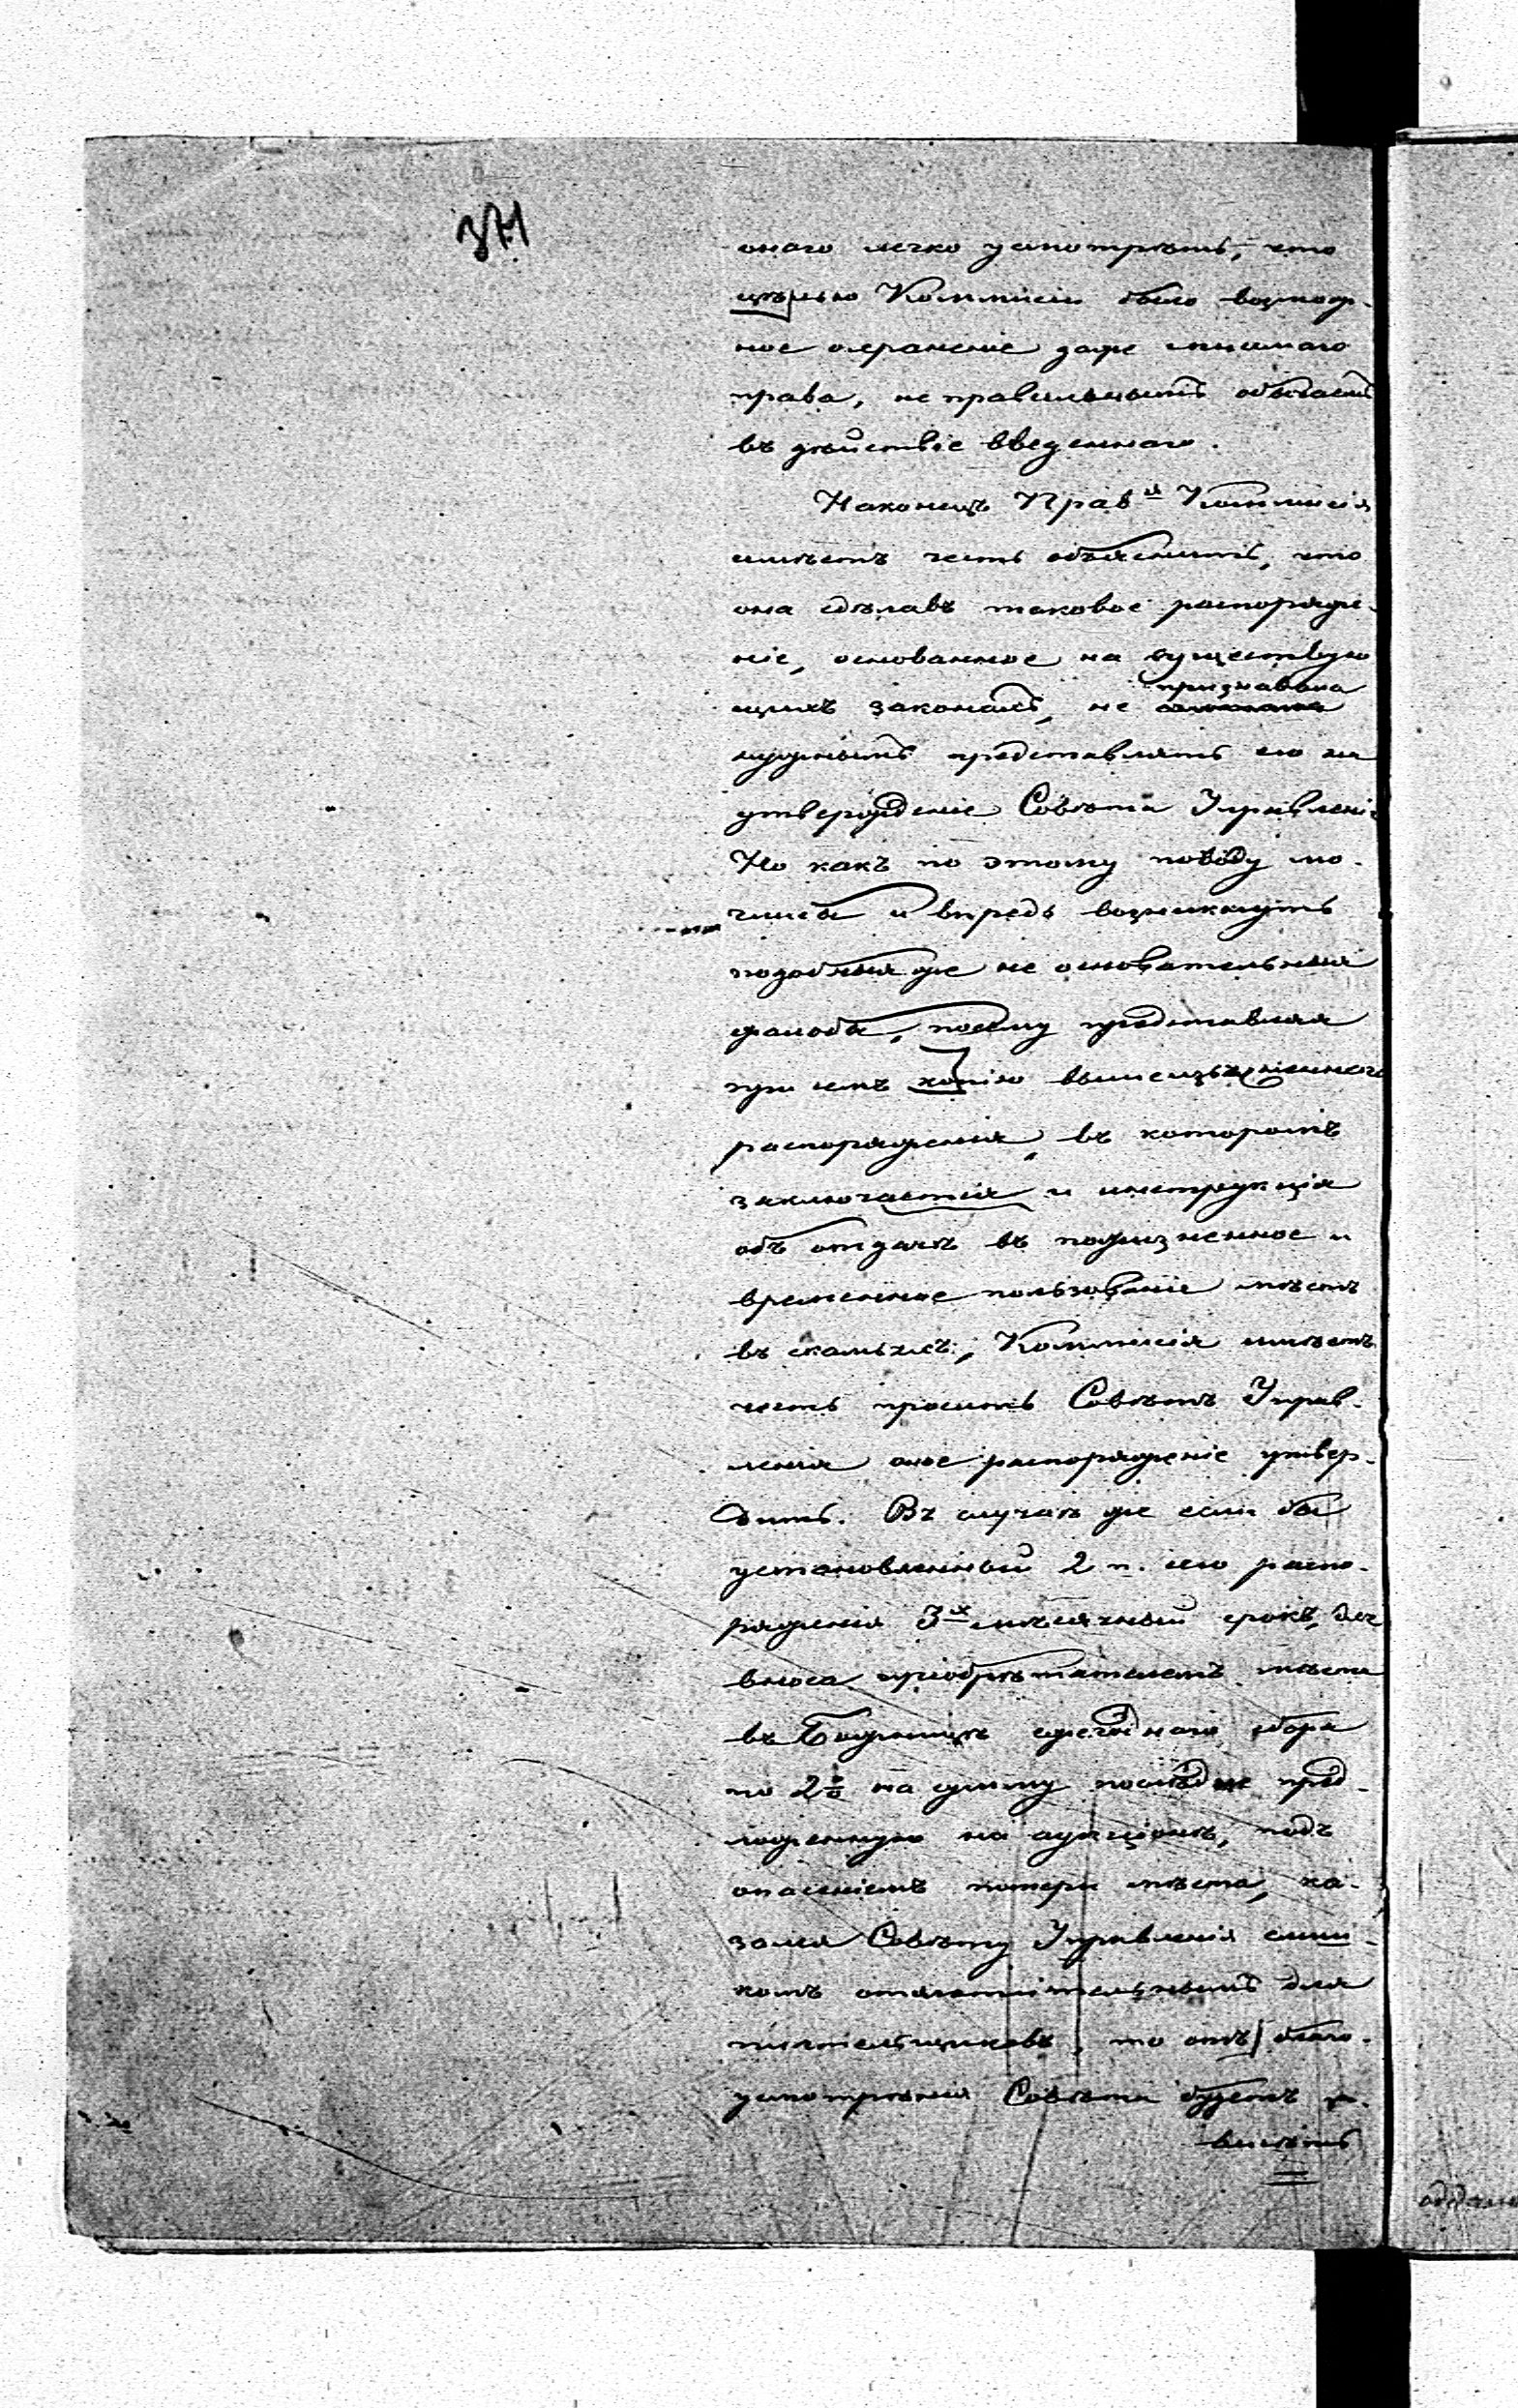 371
онаго легко усмотрѣть, что
цѣлью Коммисіи было возмож-
ное охраненіе даже мнимаго
права, не правильнымъ обычаемъ
въ дѣйствіе введеннаго.
Наконецъ Прав<sup>я</sup> Коммисія
имѣетъ честь объяснить, что
она сдѣлавъ таковое распоряже-
ніе, основанное на существую
щихъ законахъ, не признавала
нужнымъ представлять его на
утвержденіе Совѣта Управленія
Но какъ по этому поводу мо-
гли бы и впредь возникнуть
подобныя же не основательныя
жалобы, посему представляя
при семъ копію вышеизъясненнаго
распоряженія, въ которомъ
заключается и инструкція
объ отдачѣ въ пожизненное и
временное пользованіе мѣстъ
въ скамьяхъ, Коммисія имѣетъ
честь просить Совѣтъ Управ-
ленія оное распоряженіе утвер-
дить. Въ случаѣ же если бы
установленный 2 п. сего распо-
ряженія 3<sup>х</sup> мѣсячный срокъ, для
взноса пріобрѣтателемъ мѣста
въ Божницѣ ежегоднаго сбора
по 2% на сумму послѣдне пред-
ложенную на аукціонѣ, подъ
опасеніемъ потери мѣста, ка-
зался Совѣту Управленія слиш-
комъ отяготительнымъ для
плательщиковъ, то отъ благо-
усмотрѣнія Совѣта будетъ за-
висѣть